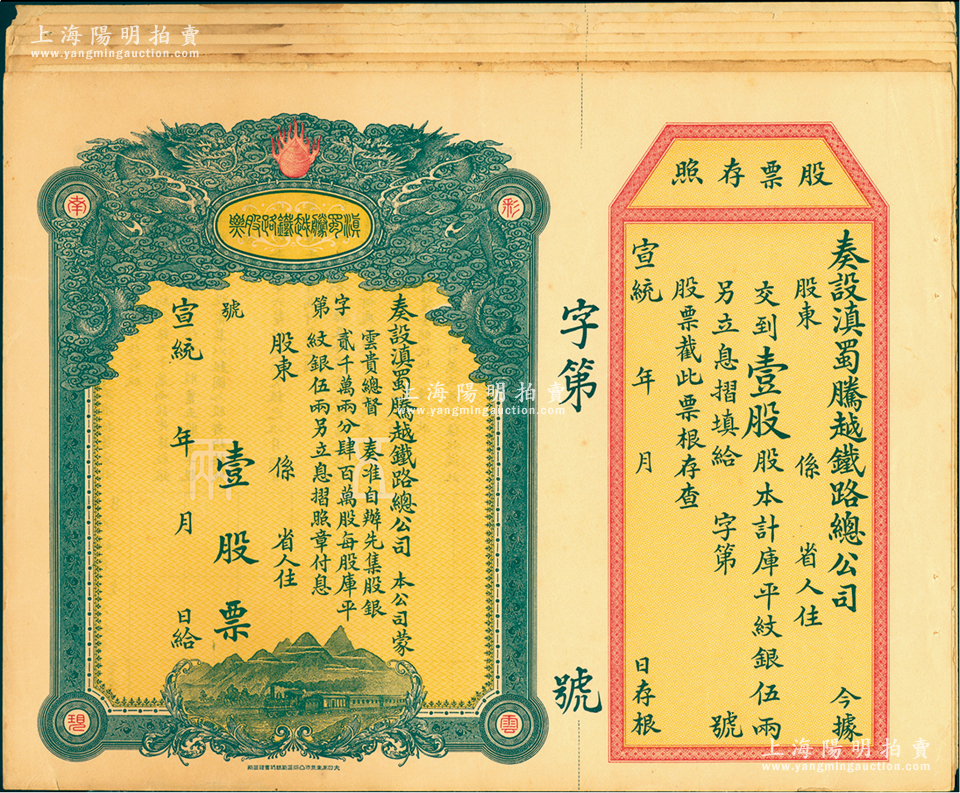 上海陽明拍賣
www.yangmingauction.com
股票存照
奏設滇蜀騰越鐵路總公司 今據
股東 係 省人住
交到壹股股本計庫平紋銀伍兩
另立息摺填給 字第 號
股票截此票根存查
宣統 年 月 日存根
字第 號
彩
南
雲
現
滇蜀騰越鐵路股票
奏設滇蜀騰越鐵路總公司 本公司蒙
雲貴總督 奏准自辦先集股銀
貳千萬兩分肆百萬股每股庫平
紋銀伍兩另立息摺照章付息
字第 號
股東 係 省人住
壹股票
宣統 年 月 日給
伍兩
上海陽明拍賣
www.yangmingauction.com
上海陽明拍賣
www.yangmingauction.com